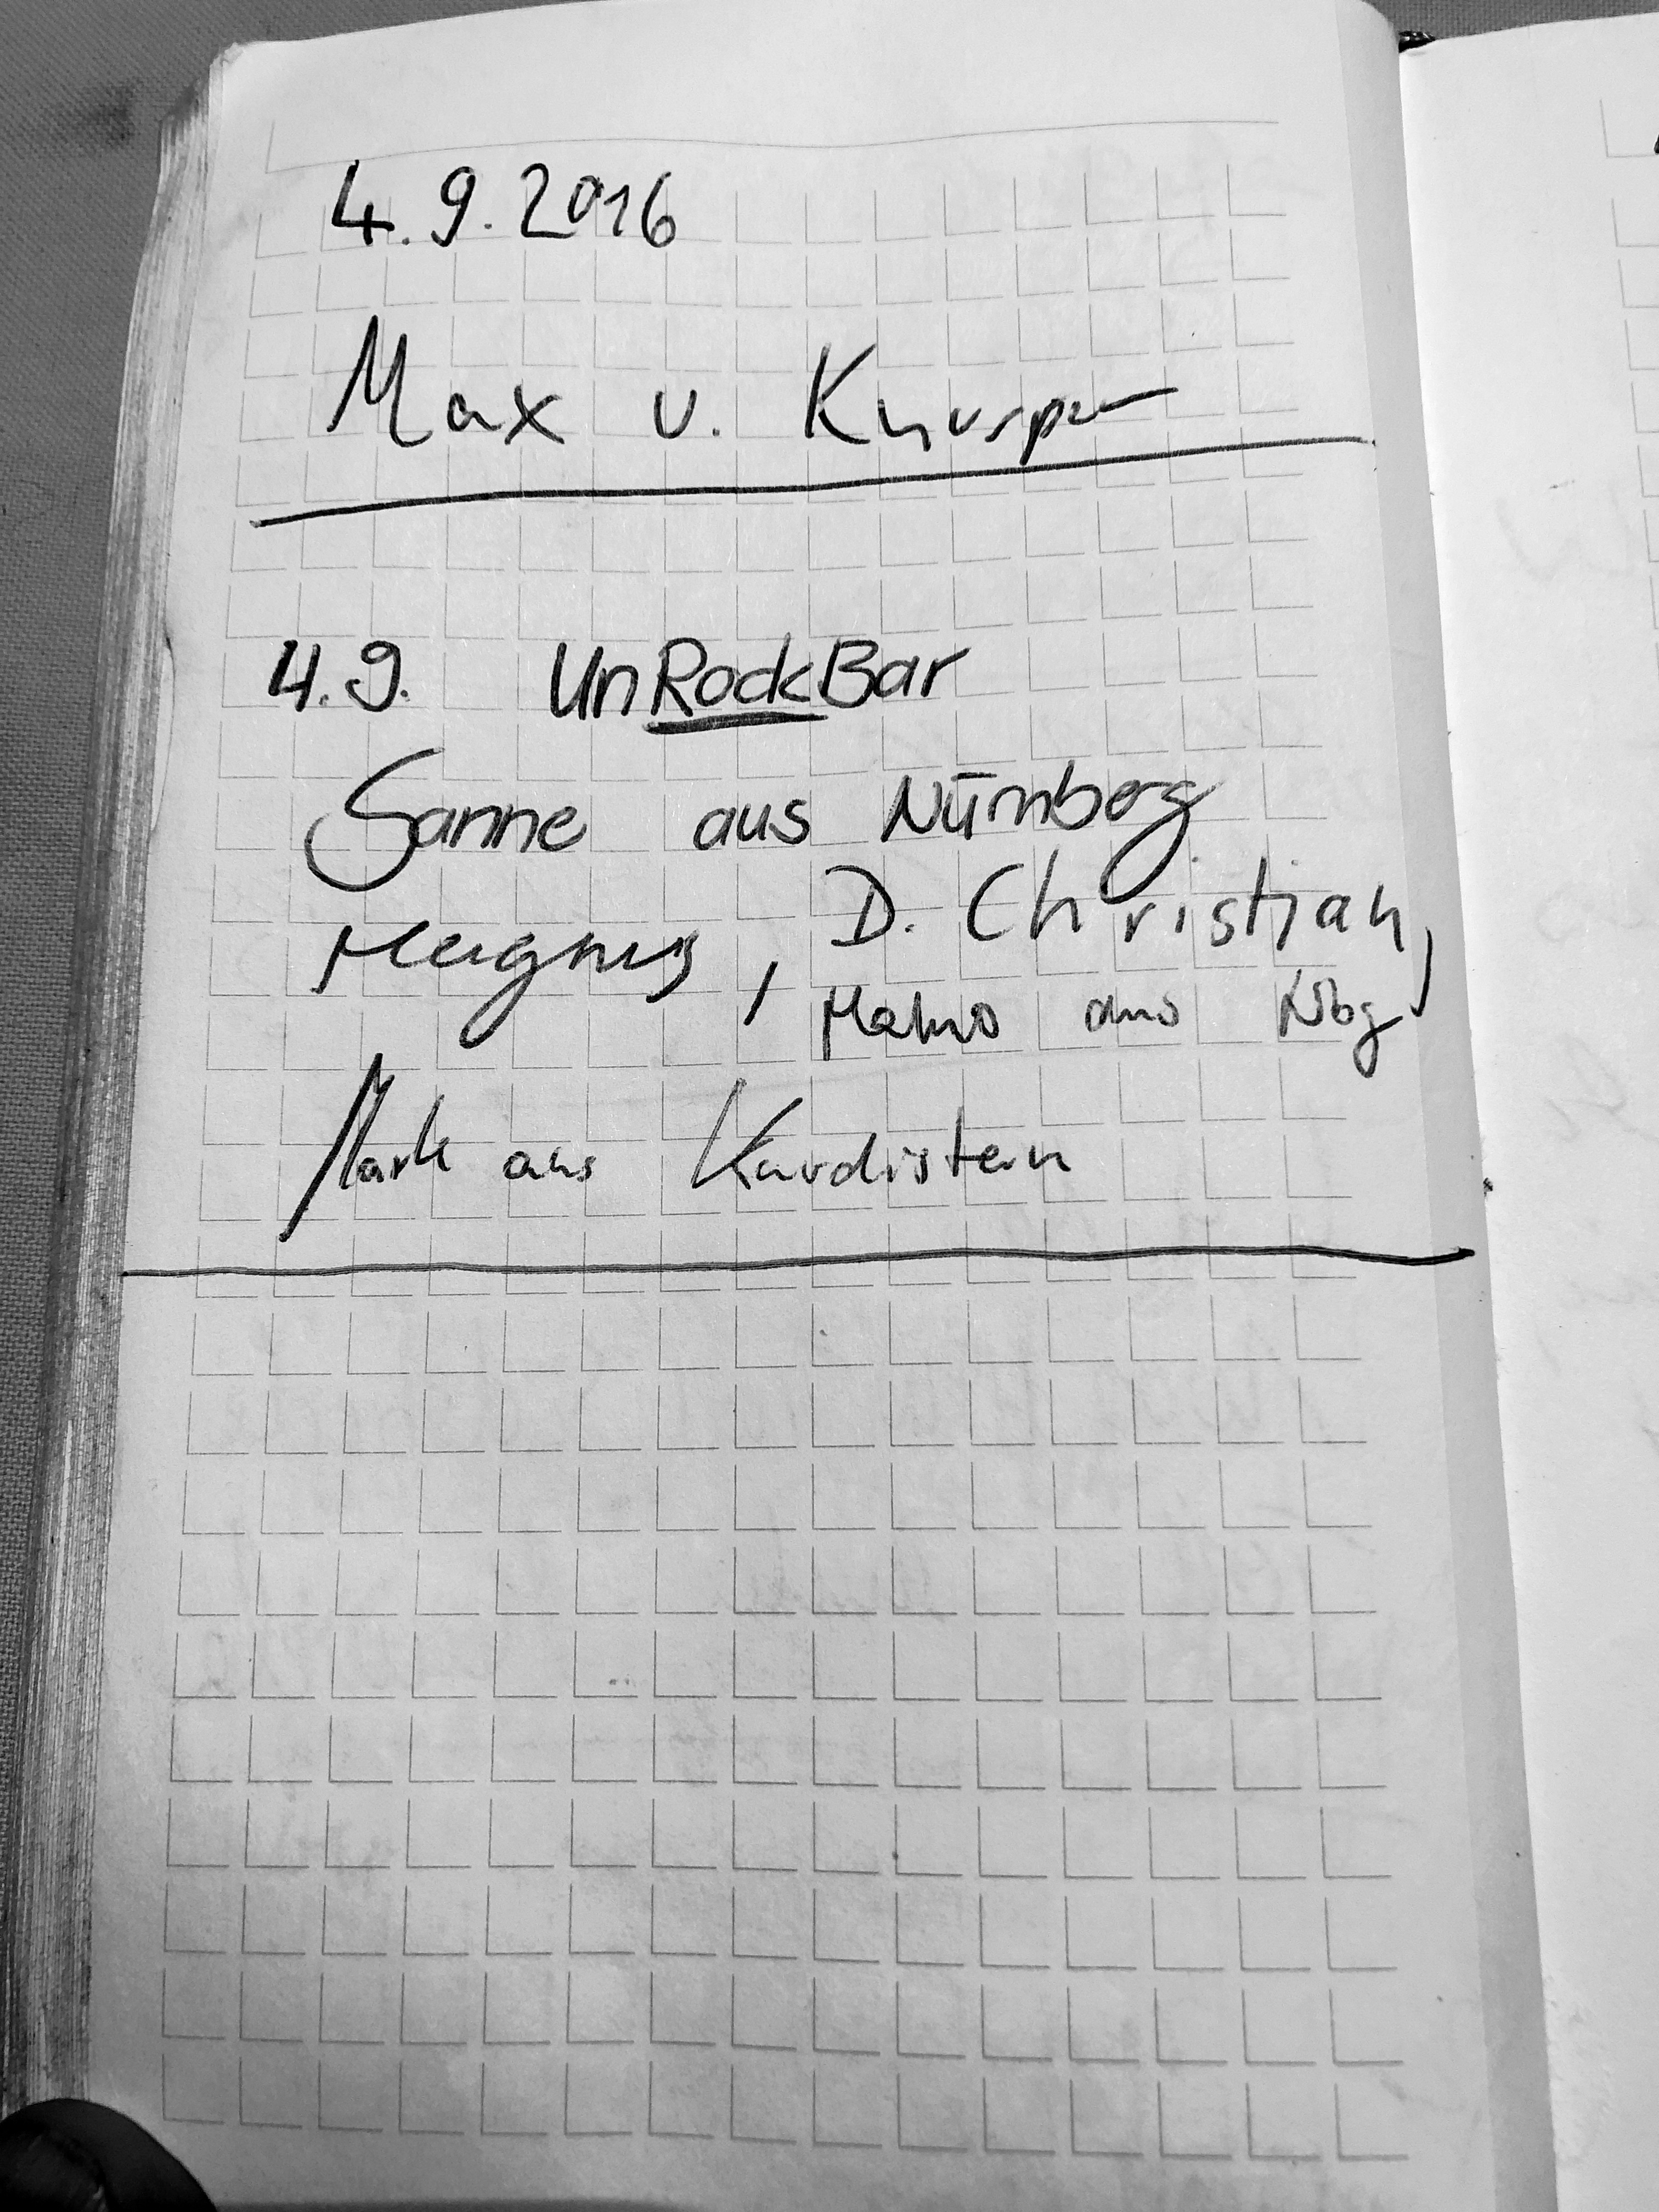 4.9.2016
Max v.
4.9. UnRockBar
Sanne aus Nürnberg
Magnus, D. Christian,
aus Nbg
Mark aus Kurdistan